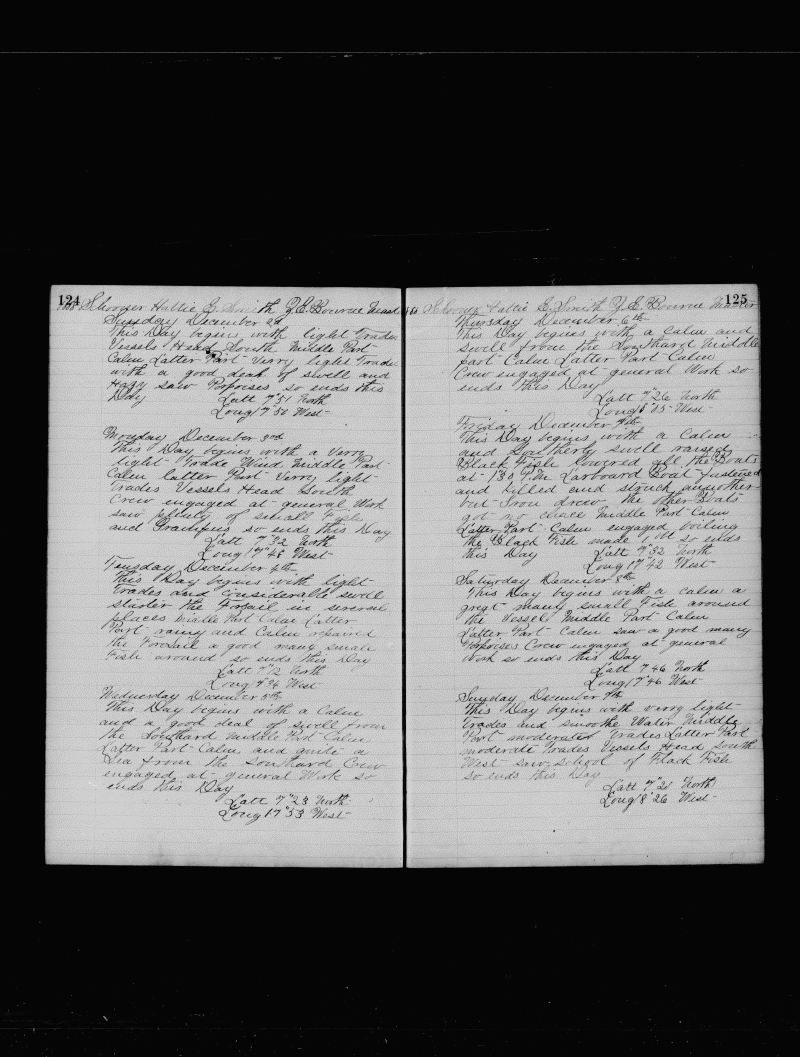 124
Schooner Hattie E. Smith Z. E. Bourne Mast
Sunday December 2d
This Day begins with light Trades
Vessels Head South Middle Part
Calm Latter Part Verry light Trades
with a good deal of swell and
Hazy saw Poproises so ends this
Day Latt 7"51 North
Long 17"50 West
Monday December 3rd
This Day begins with a Verry
light Trade Wind Middle Part
Calm latter Part Verry light
Trades Vessels Head South
Crew engaged at general Work
saw plenty of small Fish
and Grampus so ends this Day
Latt 7"32 North
Long 17"48 West
Tuesday December 4th
This Day begins with light
Trades and considerable swell
the Forsail in several
places Middle Part Calm Latter
Part rainy and Calm repaired
the Forsail a good many small
Fish around so ends this Day
Latt 7"12 North
Long West
Wednesday December 5th
This Day begins with a Calm
and a good deal of swell from
the Southard Middle Part Calm
Latter Part Calm and quite a
Sea from the Southard Crew
engaged at general Work so
ends this Day
Latt 7"23 North
Long 17"53 West
125
Schooner Hattie E. Smith Z. E. Bourne Master
Thursday December 6th
This Day begins with a Calm and
swell from the Southard Middle
part Calm Latter Part Calm
Crew engaged at general Work so
ends this Day
Latt 7"26 North
Long West
Friday December 7th
This Day begins with a Calm
and Southerly swell raised
Black Fish lowered all the Boats
at 1.30 P.M. Larboard Boat fastened
and killed and struck annother
but Iron drew the other Boats
got no chance Middle Part Calm
Latter Part Calm engaged boiling
the Black Fish made 1 bbl so ends
this Day Latt 7"52 North
Long 17"42 West
Saturday December 8th
This Day begins with a calm a
great many small Fish around
the Vessel Middle Part Calm
Latter Part Calm saw a good many
Porpoises Crew engaged at general
Work so ends this Day
Latt 7"46 North
Long 17"46 West
Sunday December 9th
This Day begins with verry light
Trades and smoothe Water Middle
Part moderated Trades Latter Part
moderate Trades Vessels Head South
West saw school of Flack Fish
so ends this Day
Latt 7"21 North
Long 18"26 West